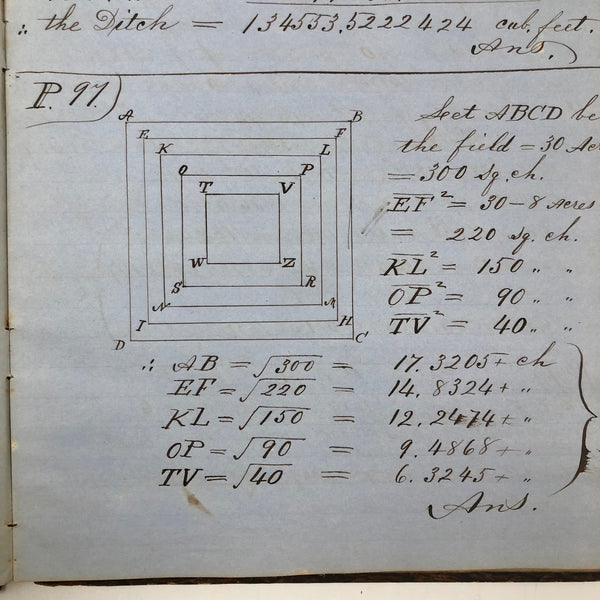 ∴ the Ditch = 134553,5222424 cub. feet.
Ans.
P. 97.
A B
E F
K L
O P
T V
W Z
S R
N M
I H
D C
Let ABCD be
the field = 30 Acr
= 300 sq. ch.
EF² = 30 – 8 Acres
= 220 sq. ch.
KL² = 150 „ „
OP² = 90 „ „
TV² = 40 „ „
∴ AB = √300 = 17.3205+ ch
EF = √220 = 14.8324+ „
KL = √150 = 12.2474+ „
OP = √90 = 9.4868+ „
TV = √40 = 6.3245+ „
Ans.